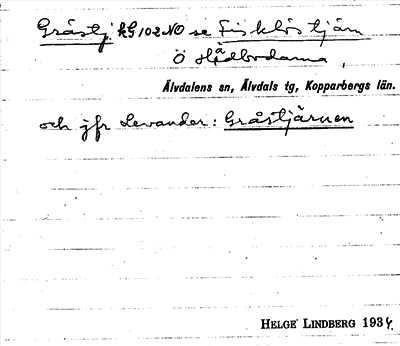 Gråstj. kG 102 NO se Fisklöstjärn
Ö Hädbodarna,
Älvdalens sn, Älvdals tg, Kopparbergs län.
och jfr Levander: Gråstjärnen
HELGE LINDBERG 1934.